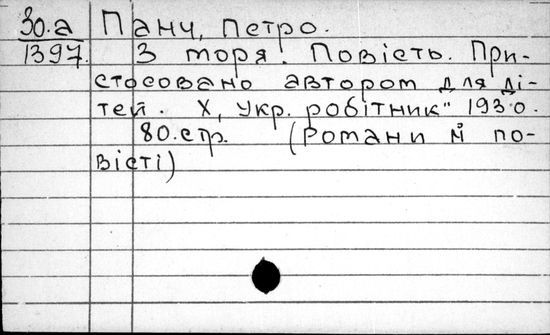 30.a Панч, Петро.
1397. З моря. Повість. При-
стосовано автором для ді-
тей. Х, Укр. робітник" 1930.
80.стр. (Романи й по-
вісті)